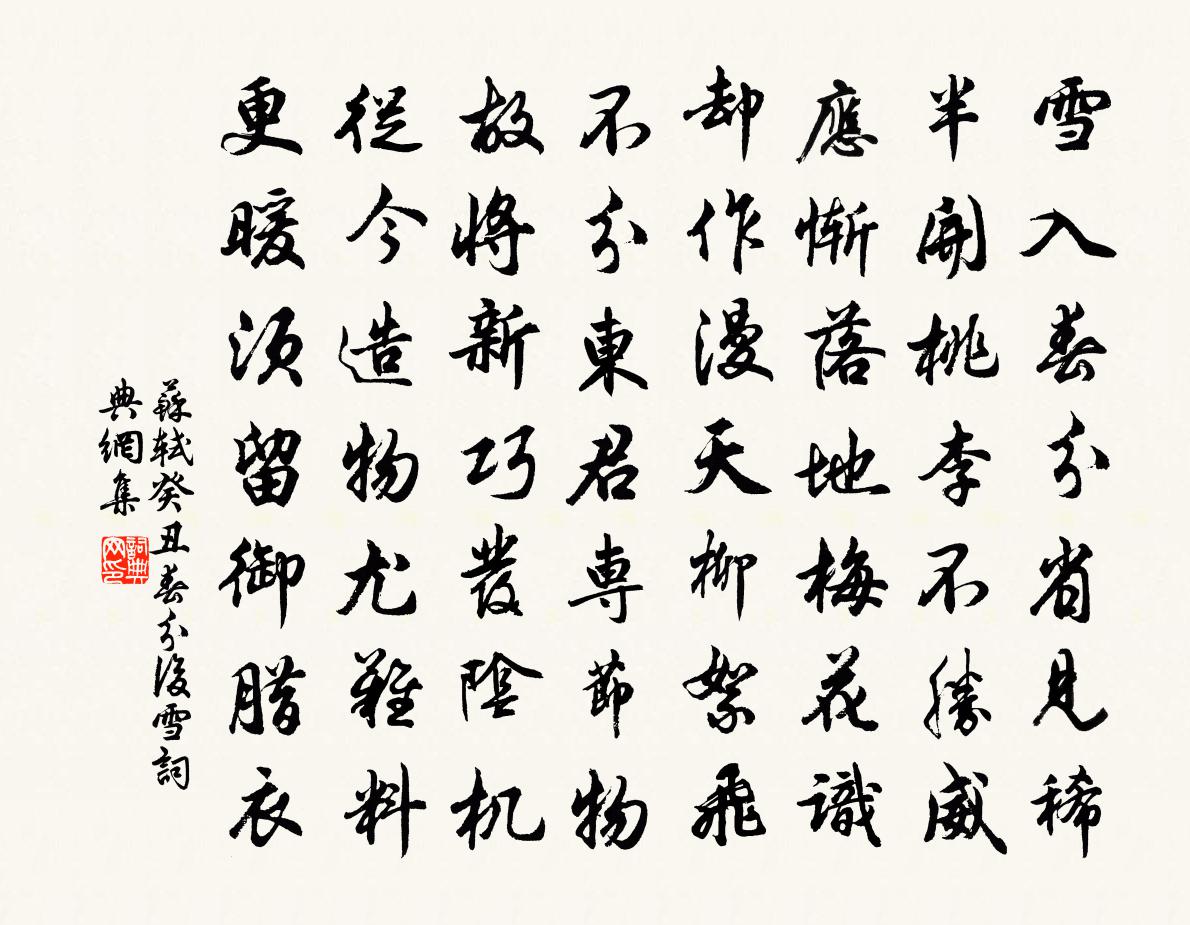 雪入春分省見稀
半開桃李不勝威
應慚落地梅花識
却作漫天柳絮飛
不分東君專節物
故將新巧發陰机
從今造物尤難料
更暖須留御腊衣
蘇軾癸丑春分後雪詞
典網集
詞典網印